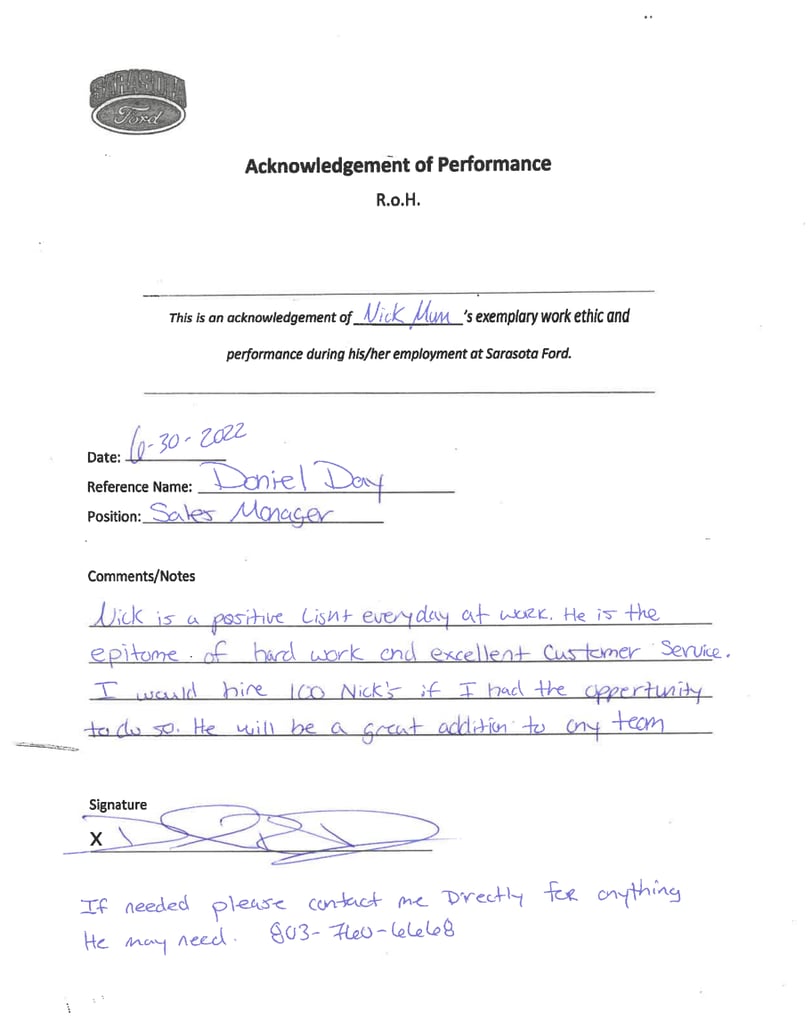 SARASOTA
Ford
Acknowledgement of Performance
R.o.H.
This is an acknowledgement of Nick Mun 's exemplary work ethic and
performance during his/her employment at Sarasota Ford.
Date: 6-30-2022
Reference Name: Daniel Day
Position: Sales Manager
Comments/Notes
Nick is a positive Lisht everyday at work. He is the
epitome of hard work and excellent Customer Service.
I would hire 100 Nick's if I had the oppertunity
to do so. He will be a great addition to any team
Signature
X
If needed please contact me Directly for anything
He may need. 803-760-6668